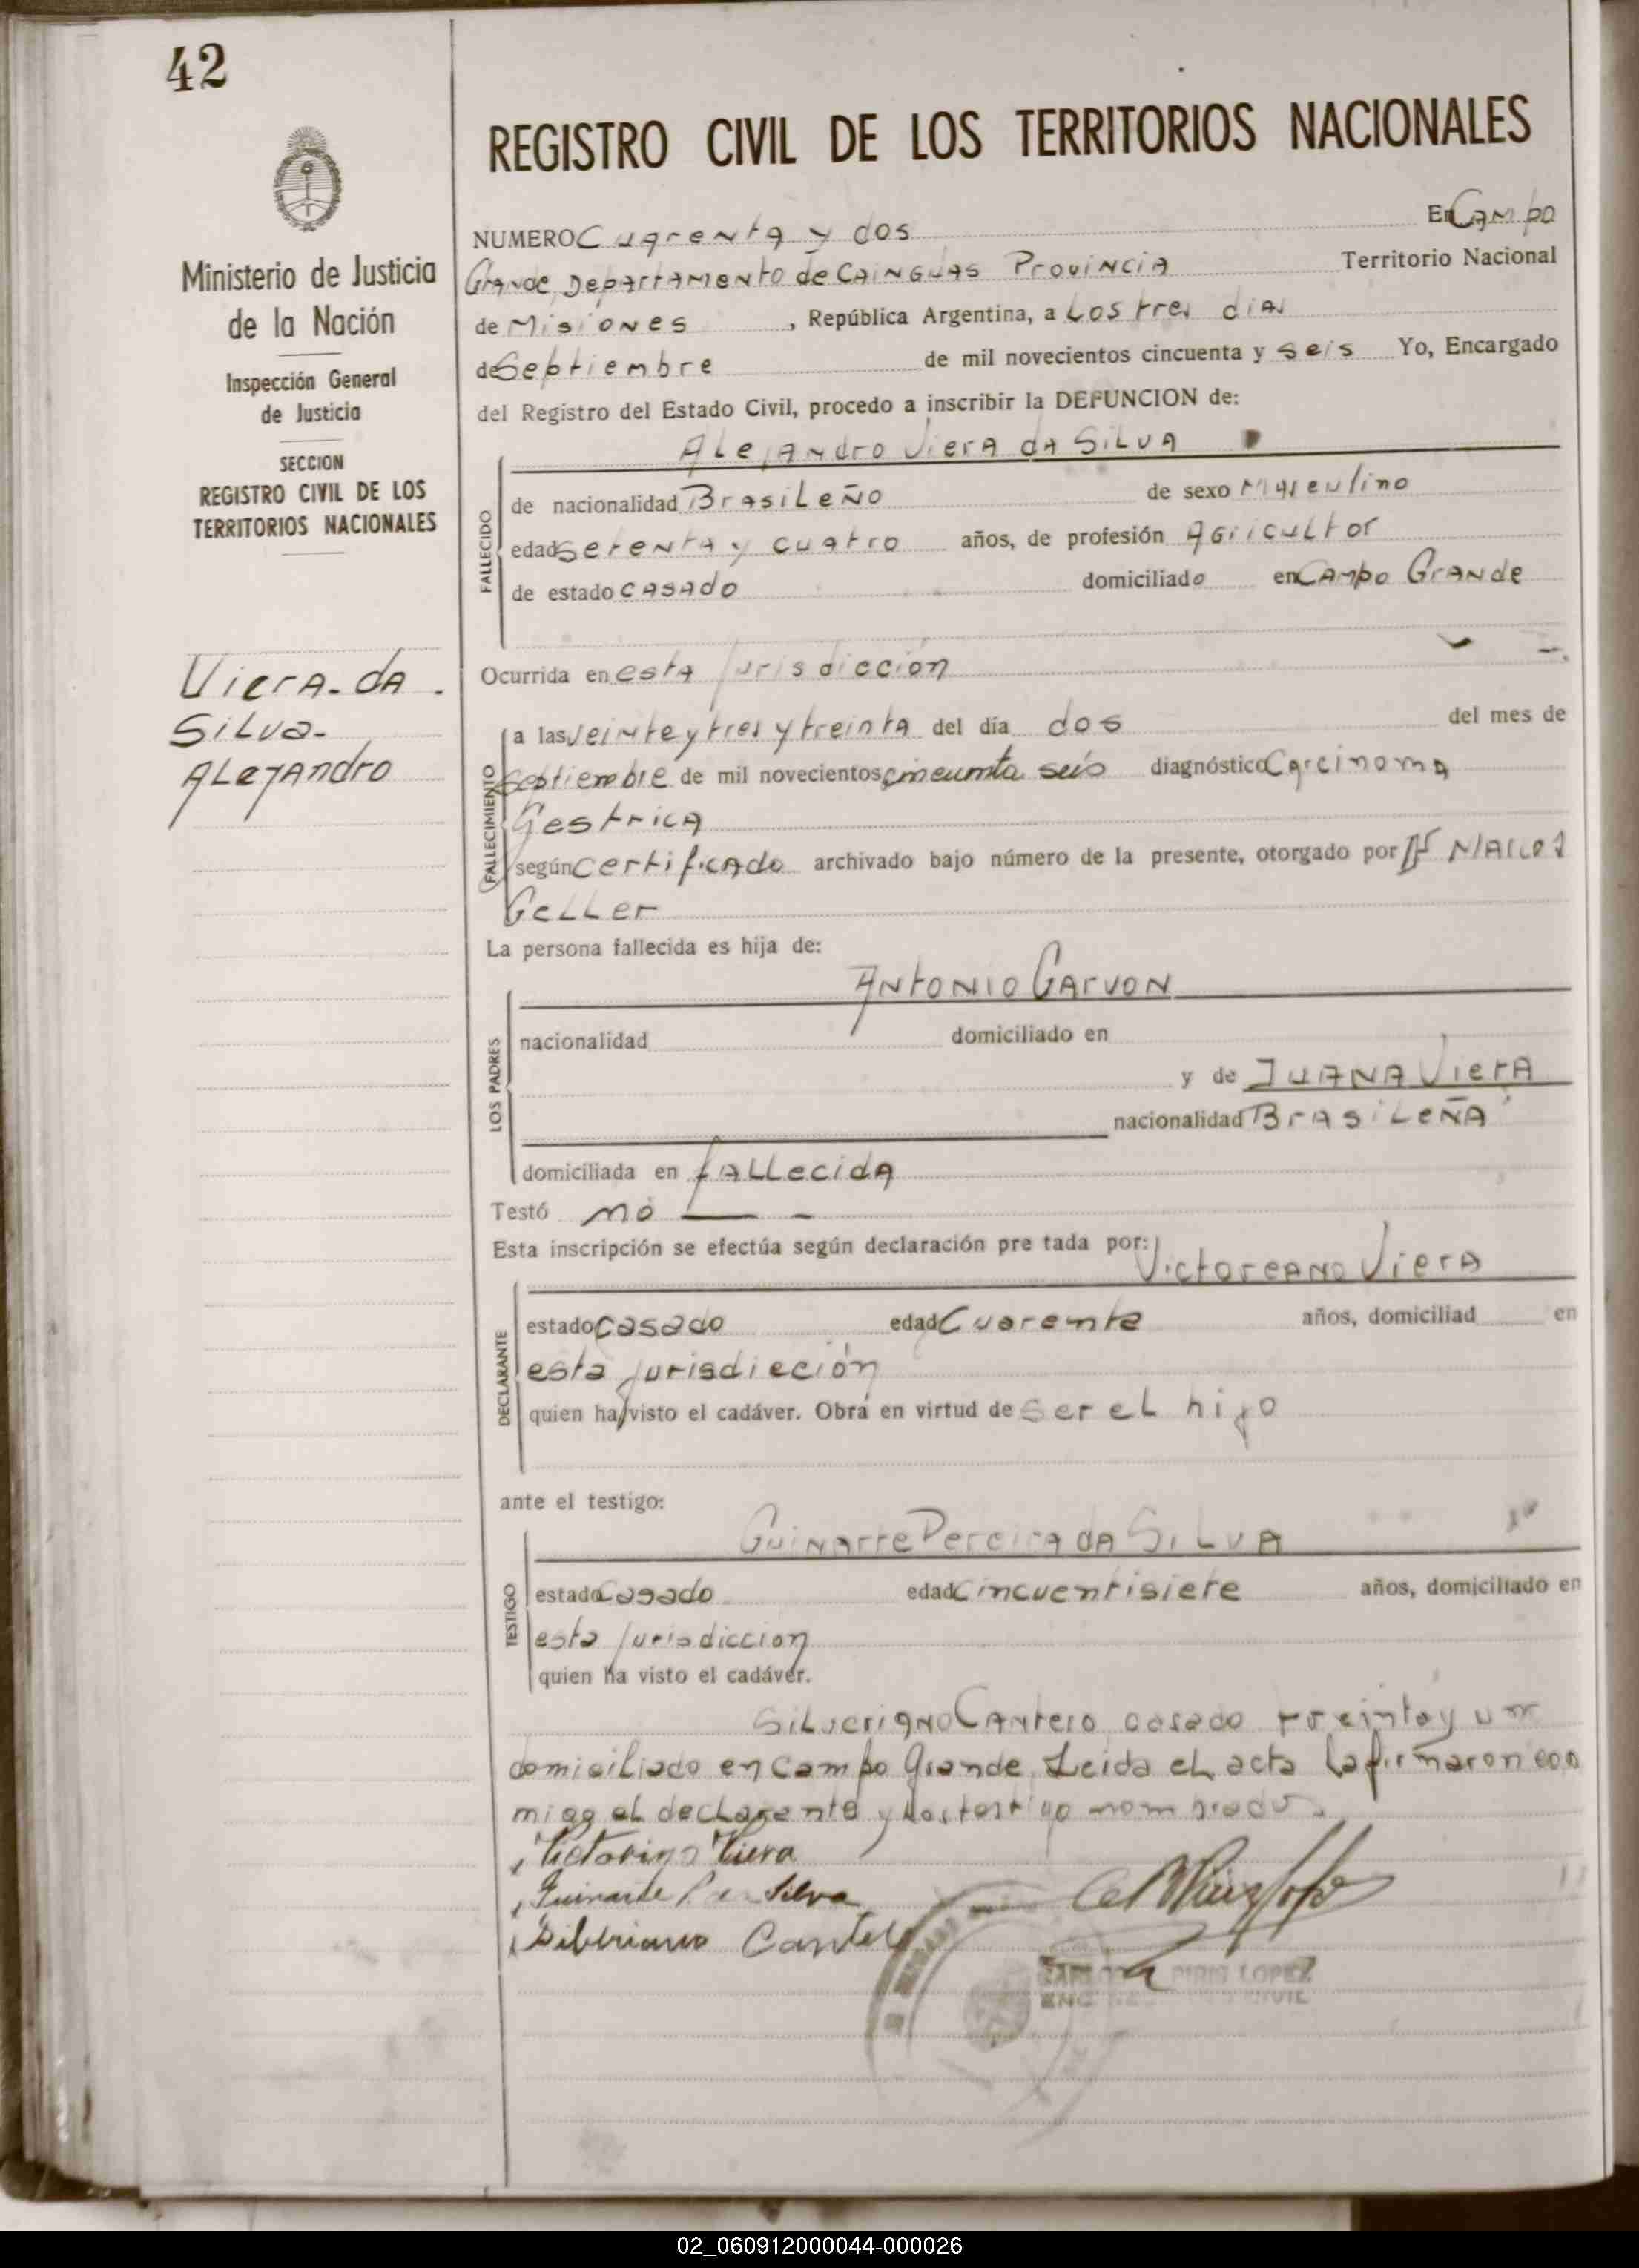 42
REGISTRO CIVIL DE LOS TERRITORIOS NACIONALES
Ministerio de Justicia
de la Nación
Inspección General
de Justicia
SECCION
REGISTRO CIVIL DE LOS
TERRITORIOS NACIONALES
Viera da
Silva
Alejandro
NUMERO Cuarenta y dos En Campo
Grande Departamento de Cainguas Provincia Territorio Nacional
de Misiones, República Argentina, a Los tres dias
de Septiembre de mil novecientos cincuenta y seis Yo, Encargado
del Registro del Estado Civil, procedo a inscribir la DEFUNCION de:
Alejandro Viera da Silva
FALLECIDO
de nacionalidad Brasileño de sexo Masculino
edad setenta y cuatro años, de profesión Agricultor
de estado casado domiciliado en Campo Grande
Ocurrida en esta jurisdicción
FALLECIMIENTO
a las veinte y tres y treinta del día dos del mes de
septiembre de mil novecientos cincuenta seis diagnóstico Carcinoma
Gestrica
según certificado archivado bajo número de la presente, otorgado por Dr Marcos
Geller
La persona fallecida es hija de:
Antonio Garvon
LOS PADRES
nacionalidad domiciliado en
y de Juana Viera
nacionalidad Brasileña
domiciliada en fallecida
Testó no
Esta inscripción se efectúa según declaración pre tada por:
Victoreano Viera
DECLARANTE
estado casado edad Cuarenta años, domiciliad en
esta jurisdieción
quien ha visto el cadáver. Obra en virtud de ser el hijo
ante el testigo:
Guinarre Pereira da Silva
TESTIGO
estado casado edad cincuentisiete años, domiciliado en
esta jurisdiccion
quien ha visto el cadáver.
Silveriano Cantero casado treinta y un
domiciliado en Campo Grande Leida el acta la firmaron con
migo el declarante y los testigo nombrados.
Victorino Viera
Guinarre Silva
Silveriano Cantero
CARLOS PIRIS LOPEZ
ENC CIVIL
02_060912000044-000026